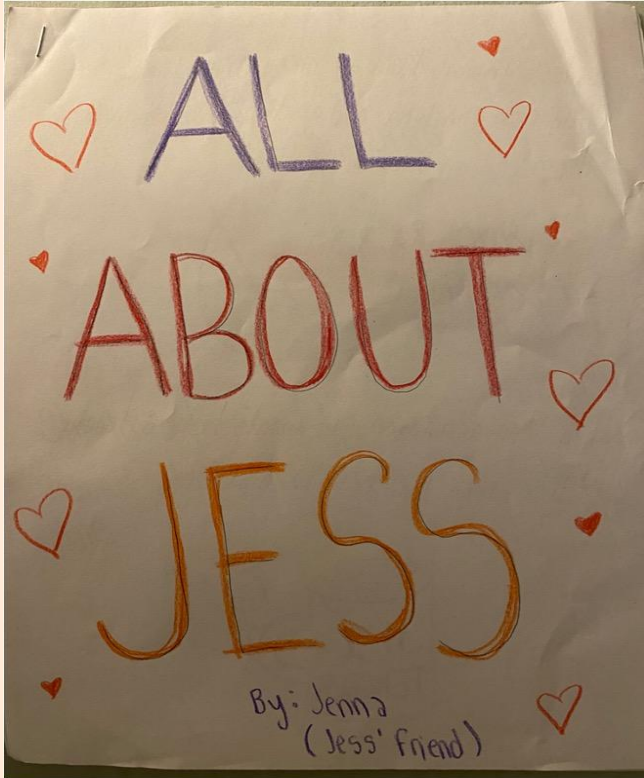 ALL
ABOUT
JESS
By: Jenna
(Jess' friend)